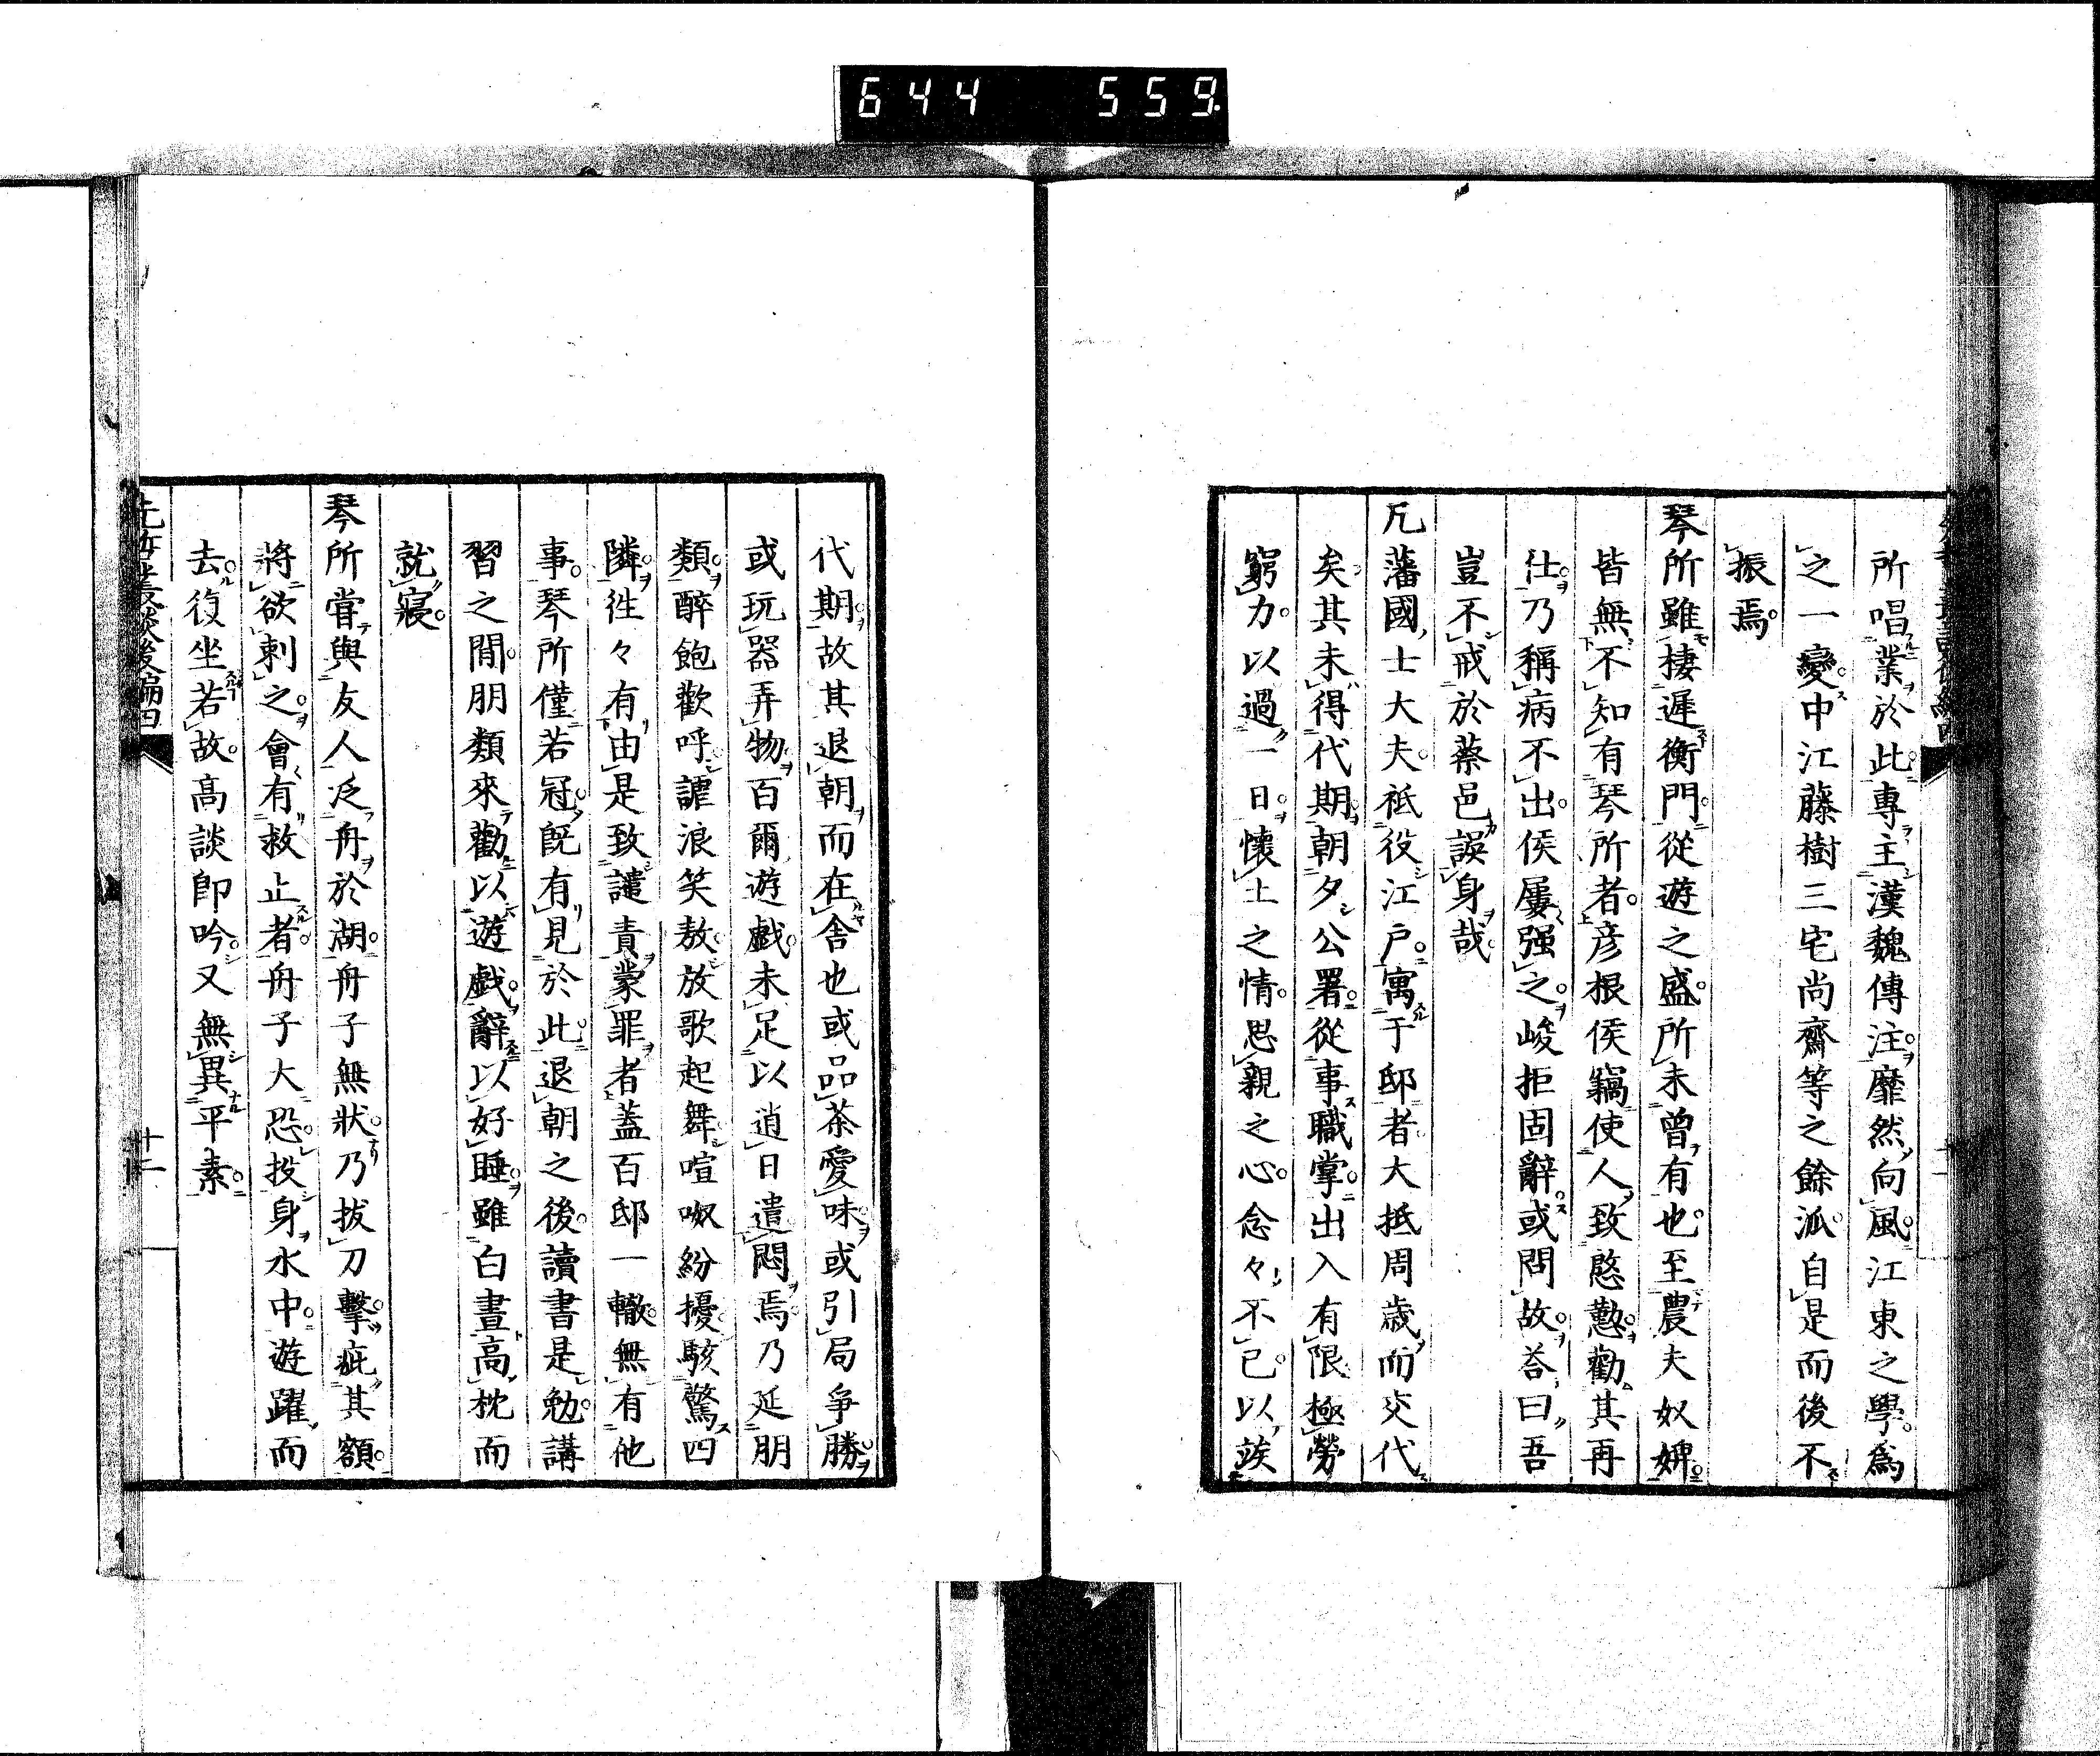 644 559
所唱業於此專主漢魏傳注靡然向風江東之學爲
之一變中江藤樹三宅尚齋等之餘派自是而後不
振焉
琴所雖棲遲衡門從遊之盛所未曾有也至農夫奴婢
皆無不知有琴所者彦根侯竊使人致慇懃勸其再
仕乃稱病不出侯屢强之峻拒固辭或問故荅曰吾
豈不戒於蔡邕誤身哉
凡藩國士大夫祗役江戸寓于邸者大抵周歳而交代
矣其未得代期朝夕公署從事職掌出入有限極勞
窮力以過一日懷土之情思親之心念々不已以竢
代期故其退朝而在舎也或品茶愛味或引局爭勝
或玩器弄物百爾遊戲未足以逍日遣悶焉乃延朋
類醉飽歡呼謔浪笑敖放歌起舞喧呶紛擾駭驚四
隣徃々有由是致譴責蒙罪者蓋百邸一轍無有他
事琴所僅若冠旣有見於此退朝之後讀書是勉講
習之間朋類來勸以遊戲辭以好睡雖白晝高枕而
就寢
琴所甞與友人泛舟於湖舟子無狀乃拔刀擊疵其額
將欲刺之會有救止者舟子大恐投身水中遊躍而
去復坐若故高談即吟又無異平素
先哲叢談後編四
十二